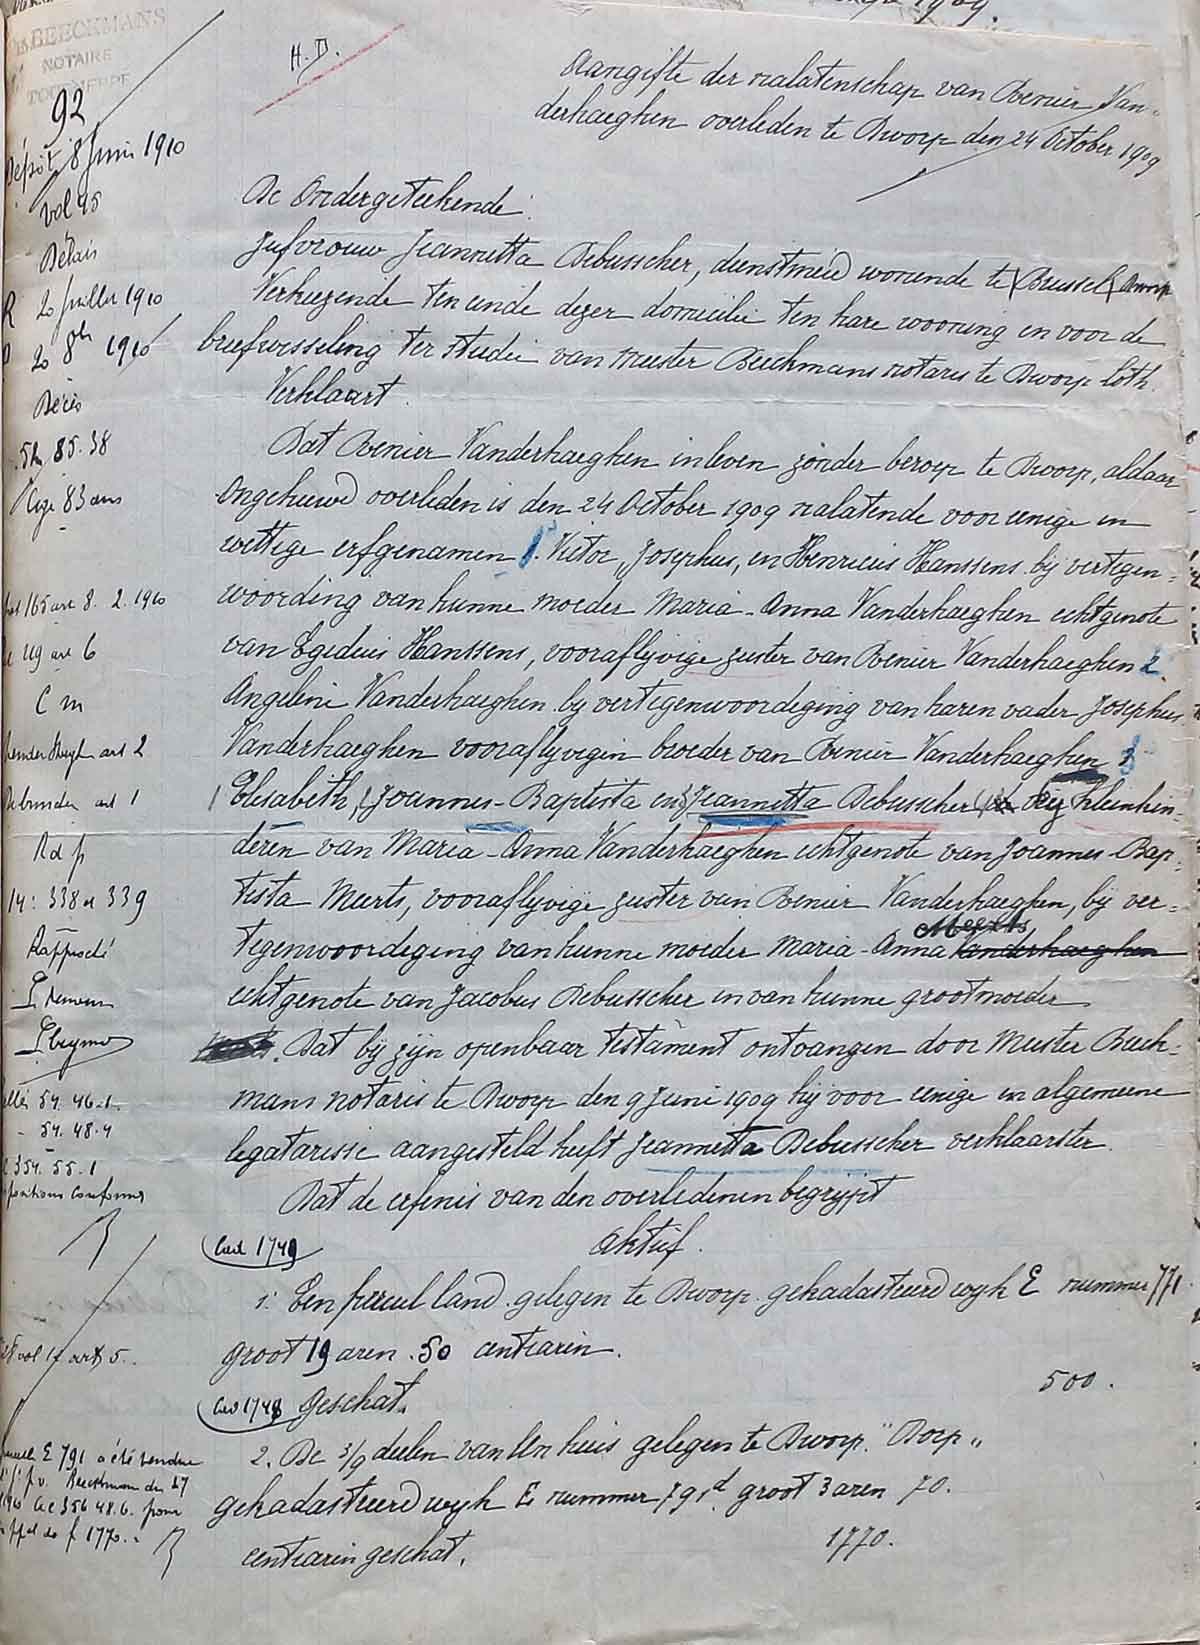 BEECKMANS
NOTAIRE
92
Dépôt 8 Juin 1910
vol 95
Délais
R 20 Juillet 1910
D 20 8bre 1910
Décès
85.38
Age 83 ans
165 art 8. 2. 1910
art 6
C m
art 2
Debusscher art 1
R d f
14: 338 et 339
Rapproché
54.46.1
54.48.4
354.55.1
dispositions conformes
vol 17 art 5.
E 791 a été vendue
p.v. Beeckman du 27
1910 Ac 356 48.6. pour
de f. 1770.
H. D.
Aangifte der nalatenschap van Renier Van-
derhaeghen overleden te Dworp den 24 October 1909
De Ondergeteekende.
Jufvrouw Jeannetta Debusscher, dienstmeid wonende te (Brussel) Dworp
Verkiezende ten einde dezer domicilie ten hare wooning en voor de
briefwisseling ter studie van meester Beeckmans notaris te Dworp loth.
Verklaart.
Dat Renier Vanderhaeghen inleven zonder beroep te Dworp, aldaar
ongehuwd overleden is den 24 October 1909 nalatende voor eenige en
wettige erfgenamen 1. Victor, Josephus, en Henricus Hanssens bij vertegen=
woording van hunne moeder Maria-Anna Vanderhaeghen echtgenote
van Egedius Hanssens, voorafljvige zuster van Renier Vanderhaeghen 2.
Angelini Vanderhaeghen bij vertegenwoordeging van haren vader Josephus
Vanderhaeghen vooraflyvegin broeder van Renier Vanderhaeghen 3
Elisabeth, Joannes-Baptista en Jeannetta Debusscher kleinkin-
deren van Maria-Anna Vanderhaeghen echtgenote van Joannes-Bap-
tista Meerts, vooraflyvige zuster van Renier Vanderhaeghen, bij ver=
Meerts
tegenwoordeging van hunne moeder Maria-Anna Vanderhaeghen
echtgenote van Jacobus Debusscher en van hunne grootmoeder
Dat bij zijn openbaar testament ontvangen door Meester Beeck=
mans notaris te Dworp den 9 Juni 1909 hij voor eenige en algemeene
legatarisse aangesteld heeft Jeannetta Debusscher verklaarster.
Dat de erfenis van den overledenen begrijpt
Cad 1749
Aktief.
1: Een perceel land gelegen te Dworp gekadastreerd wyk E nummer 771
groot 19 aren 50 centiaren.
500.
Cad 1748 geschat.
2. De 3/9 deelen van een huis gelegen te Dworp "Dorp"
gekadastreerd wyk E nummer 791d groot 3 aren 70.
centiaren geschat. 1770.